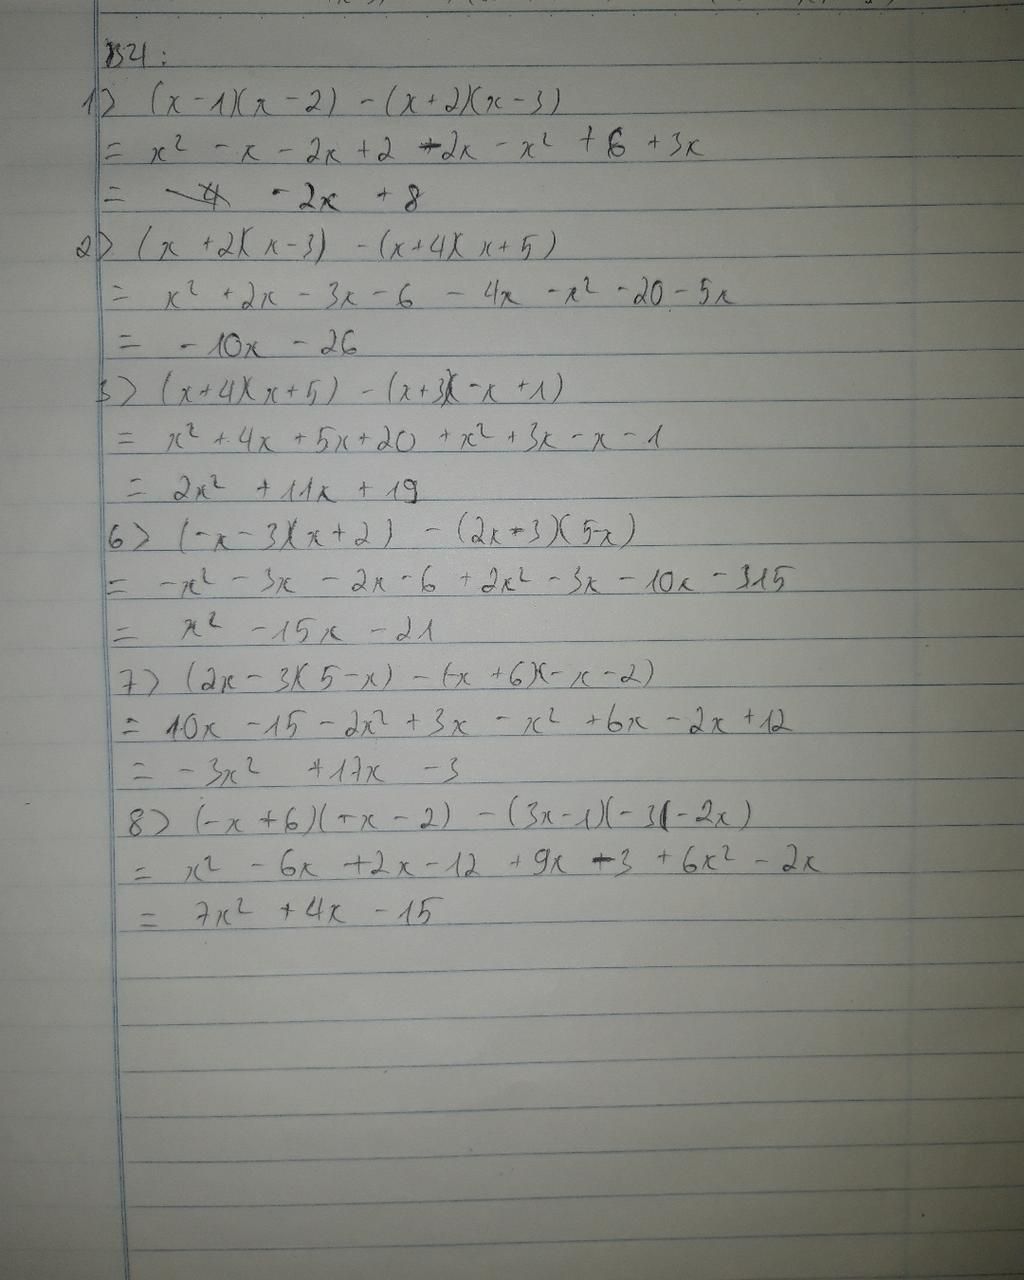 B4:
1) (x - 1)(x - 2) - (x + 2)(x - 3)
= x² - x - 2x + 2 - 2x - x² + 6 + 3x
= - 2x + 8
2) (x + 2)(x - 3) - (x + 4)(x + 5)
= x² + 2x - 3x - 6 - 4x - x² - 20 - 5x
= - 10x - 26
3) (x + 4)(x + 5) - (x + 3)(-x + 1)
= x² + 4x + 5x + 20 + x² + 3x - x - 1
= 2x² + 11x + 19
6) (-x - 3)(x + 2) - (2x + 3)(5-x)
= -x² - 3x - 2x - 6 + 2x² - 3x - 10x - 315
= x² - 15x - 21
7) (2x - 3)(5 - x) - (-x + 6)(-x - 2)
= 10x - 15 - 2x² + 3x - x² + 6x - 2x + 12
= - 3x² + 17x - 3
8) (-x + 6)(-x - 2) - (3x - 1)(-3 - 2x)
= x² - 6x + 2x - 12 + 9x - 3 + 6x² - 2x
= 7x² + 4x - 15